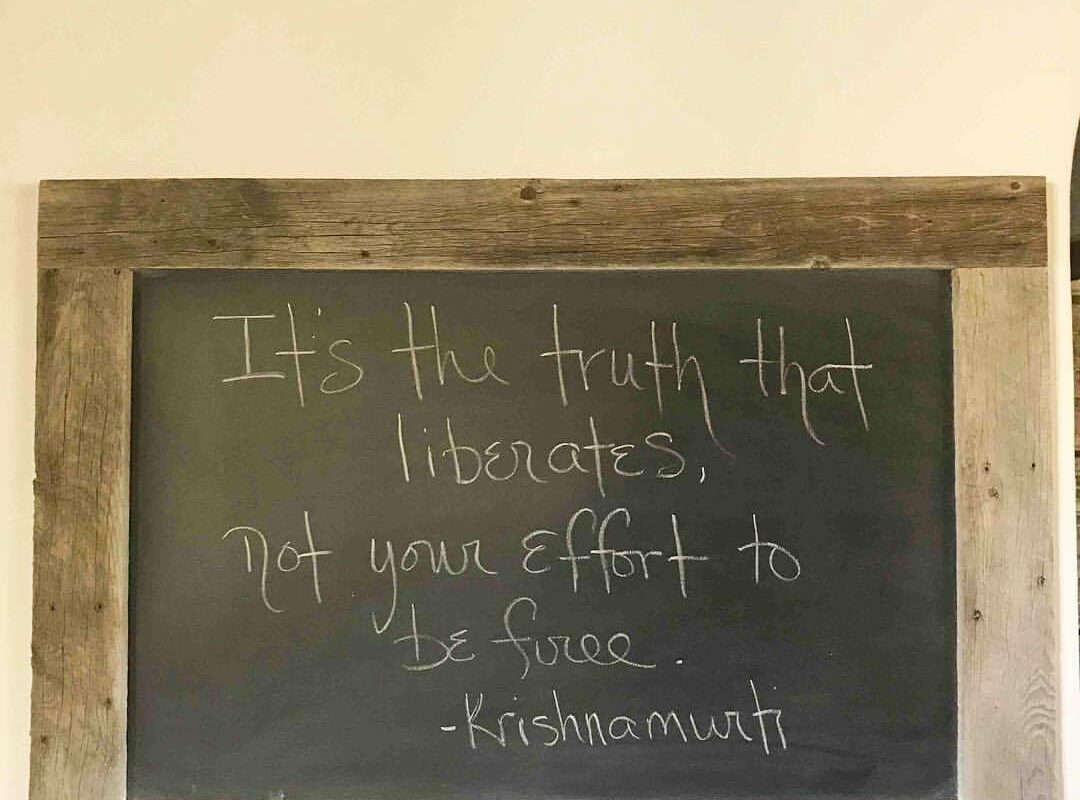 It's the truth that
liberates,
not your effort to
be free.
-Krishnamurti